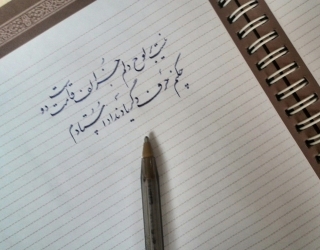 نیست بر لوح دلم جز الف قامت دوست
چکنم حرف دگر یاد نداد استادم